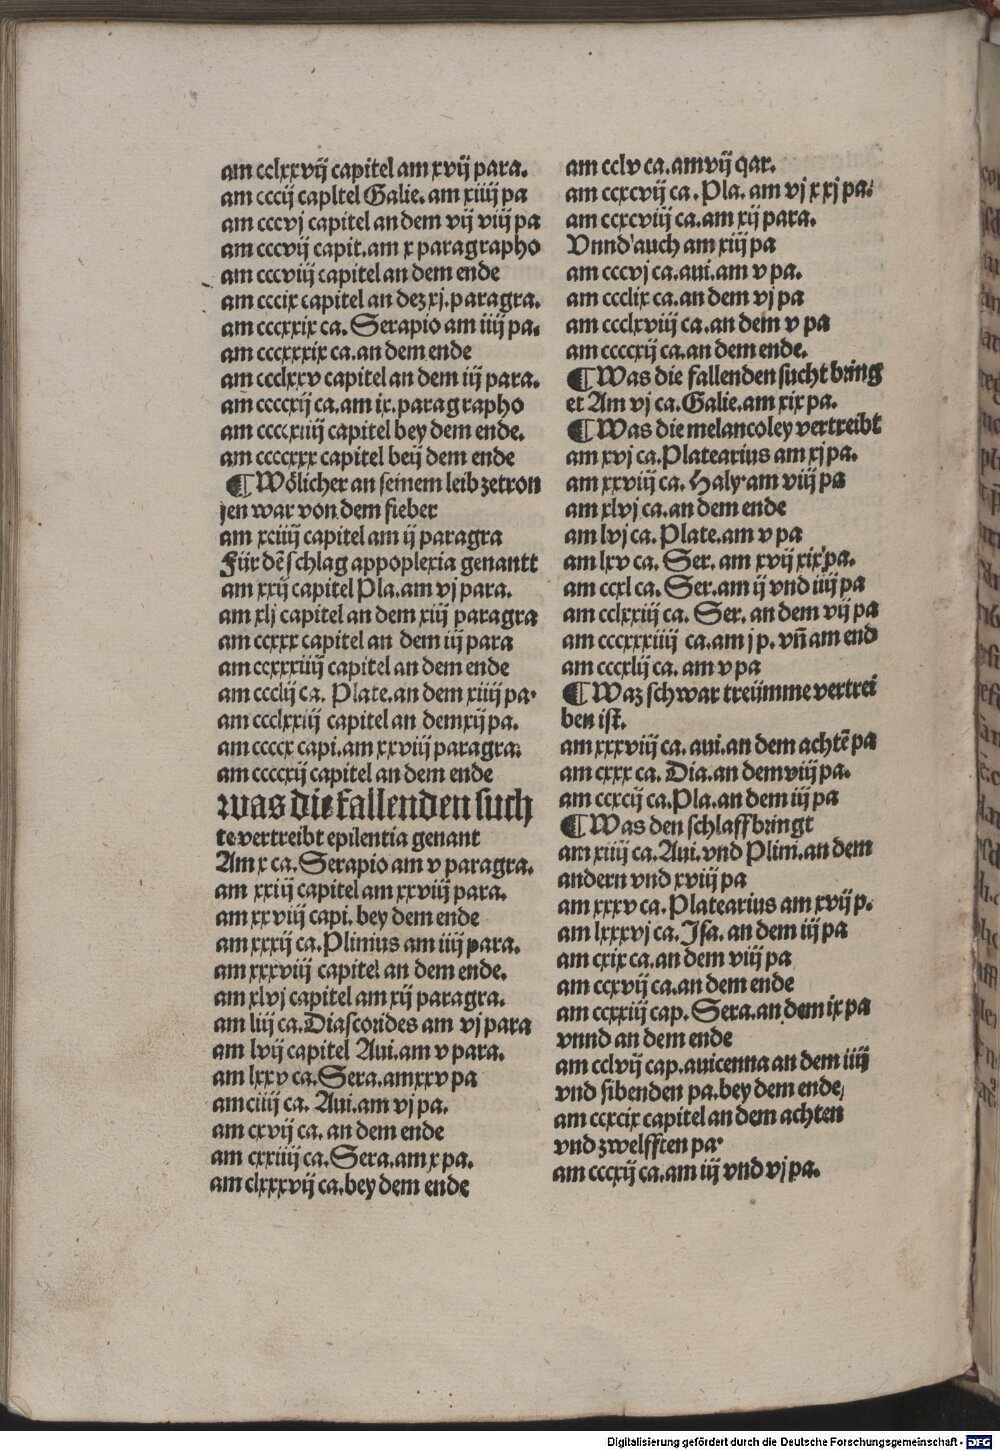 am cclxxvij capitel am xvij para.
am cccij capitel Galie. am xiiij pa
am cccvj capitel an dem vij viij pa
am cccvij capit. am x paragrapho
am cccviij capitel an dem ende
am cccix capitel an dez xj. paragra.
am cccxxix ca. Serapio am iiij pa.
am cccxxxix ca. an dem ende
am ccclxxv capitel an dem iij para.
am ccccxij ca. am ix. paragrapho
am ccccxiiij capitel bey dem ende.
am ccccxxx capitel beij dem ende
¶ Wölicher an seinem leib zetron
jen war von dem fieber
am xciiij capitel am ij paragra
Für dē schlag appoplexia genantt
am xxij capitel Pla. am vj para.
am xlj capitel an dem xiij paragra
am ccxxx capitel an dem iij para
am ccxxxiiij capitel an dem ende
am ccclij ca. Plate. an dem xiiij pa.
am ccclxxiij capitel an dem xij pa.
am ccccx capi. am xxviij paragra.
am ccccxij capitel an dem ende
Was die fallenden such
te vertreibt epilentia genant
Am x ca. Serapio am v paragra.
am xxiij capitel am xxviij para.
am xxviij capi. bey dem ende
am xxxij ca. Plinius am iiij para.
am xxxviij capitel an dem ende.
am xlvj capitel am xij paragra.
am liij ca. Diascorides am vj para
am lvij capitel Aui. am v para.
am lxxv ca. Sera. am xxv pa
am ciiij ca. Aui. am vj pa.
am cxvij ca. an dem ende
am cxxiiij ca. Sera. am x pa.
am clxxxvij ca. bey dem ende
am cclv ca. am vij qar.
am ccxcvij ca. Pla. am vj xxj pa.
am ccxcviij ca. am xij para.
Vnnd auch am xiij pa
am cccvj ca. aui. am v pa.
am ccclix ca. an dem vj pa
am ccclxviij ca. an dem v pa
am ccccxij ca. an dem ende.
¶ Was die fallenden sucht bring
et Am vj ca. Galie. am xix pa.
¶ Was die melancoley vertreibt
am xvj ca. Platearius am xj pa.
am xxviij ca. Haly. am viij pa
am xlvj ca. an dem ende
am lvj ca. Plate. am v pa
am lxv ca. Ser. am xvij xix pa.
am ccxl ca. Ser. am ij vnd iiij pa
am cclxxiij ca. Ser. an dem vij pa
am cccxxxiiij ca. am j p. vñ am end
am cccxlij ca. am v pa
¶ Waz schwar treümme vertrei
ben ist.
am xxxviij ca. aui. an dem achtē pa
am cxxx ca. Dia. an dem viij pa.
am ccxcij ca. Pla. an dem iij pa
¶ Was den schlaff bringt
am xiiij ca. Aui. vnd Plini. an dem
andern vnd xviij pa
am xxxv ca. Platearius am xvij p.
am lxxxvj ca. Isa. an dem iij pa
am cxix ca. an dem viij pa
am ccxvij ca. an dem ende
am ccxxiij cap. Sera. an dem ix pa
vnnd an dem ende
am cclvij cap. auicenna an dem iiij
vnd sibenden pa. bey dem ende/
am ccxcix capitel an dem achten
vnd zwelfften pa.
am cccxij ca. am iij vnd vj pa.
Digitalisierung gefördert durch die Deutsche Forschungsgemeinschaft - DFG